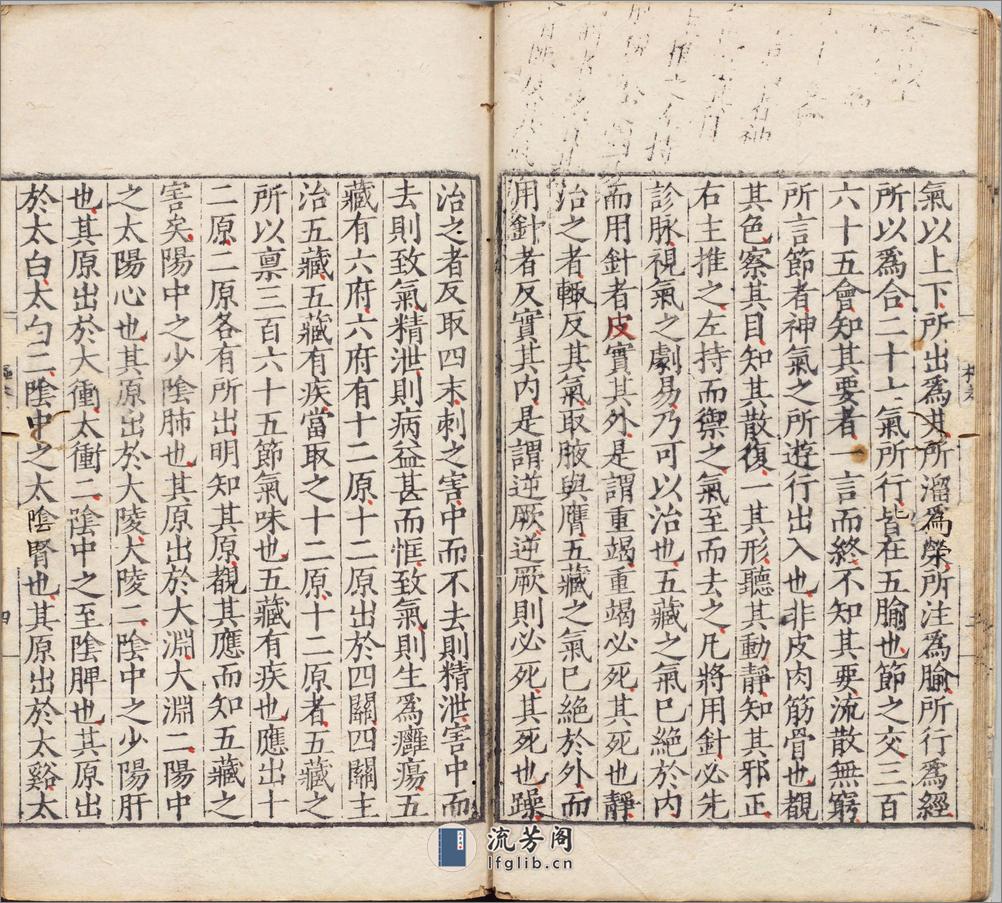 氣以上下所出爲井所溜爲榮所注爲腧所行爲經
所以爲合二十七氣所行皆在五腧也節之交三百
六十五會知其要者一言而終不知其要流散無窮
所言節者神氣之所遊行出入也非皮肉筋骨也覩
其色察其目知其散復一其形聽其動靜知其邪正
右主推之左持而御之氣至而去之凡將用針必先
診脉視氣之劇易乃可以治也五藏之氣已絕於内
而用針者皮實其外是謂重竭重竭必死其死也靜
治之者輙反其氣取腋與膺五藏之氣已絕於外而
用針者反實其内是謂逆厥逆厥則必死其死也躁
治之者反取四末刺之害中而不去則精泄害中而
去則致氣精泄則病益甚而恇致氣則生爲癰瘍五
藏有六府六府有十二原十二原出於四關四關主
治五藏五藏有疾當取之十二原十二原者五藏之
所以禀三百六十五節氣味也五藏有疾也應出十
二原二原各有所出明知其原覩其應而知五藏之
害矣陽中之少陰肺也其原出於大淵大淵二陽中
之太陽心也其原出於大陵大陵二陰中之少陽肝
也其原出於大衝太衝二陰中之至陰脾也其原出
於太白太白二陰中之太陰腎也其原出於太谿太
四
流芳阁
lfglib.cn